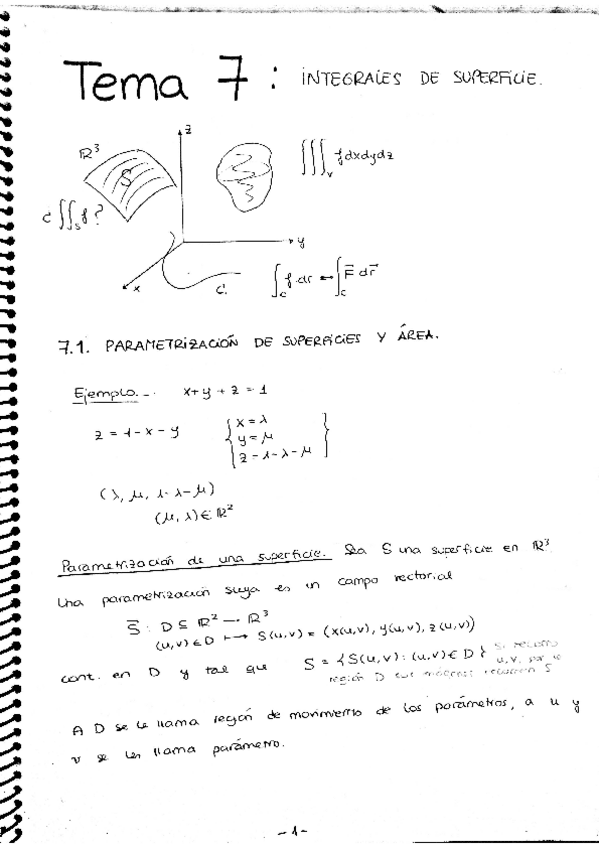 Tema 7: INTEGRALES DE SUPERFICIE.
ℝ³
z
S
∭_V f dxdydz
¿∬_S f?
y
x
C.
∫_C f dr ↔ ∫_C F⃗ dr⃗
7.1. PARAMETRIZACIÓN DE SUPERFICIES Y ÁREA.
Ejemplo.-. x+y+z=1
z = 1-x-y { x = λ
y = μ
z = 1-λ-μ }
(λ, μ, 1-λ-μ)
(μ, λ) ∈ ℝ²
Parametrización de una superficie. Sea S una superficie en ℝ³
Una parametrización suya es un campo vectorial
S̄ : D ⊆ ℝ² → ℝ³
(u,v) ∈ D ↦ S(u,v) = (x(u,v), y(u,v), z(u,v))
cont. en D y tal que S = {S(u,v) : (u,v) ∈ D} Si recorro
u, v, por la
región D sus recorren S
A D se le llama región de movimiento de los parámetros, a u y
v se les llama parámetro.
-1-